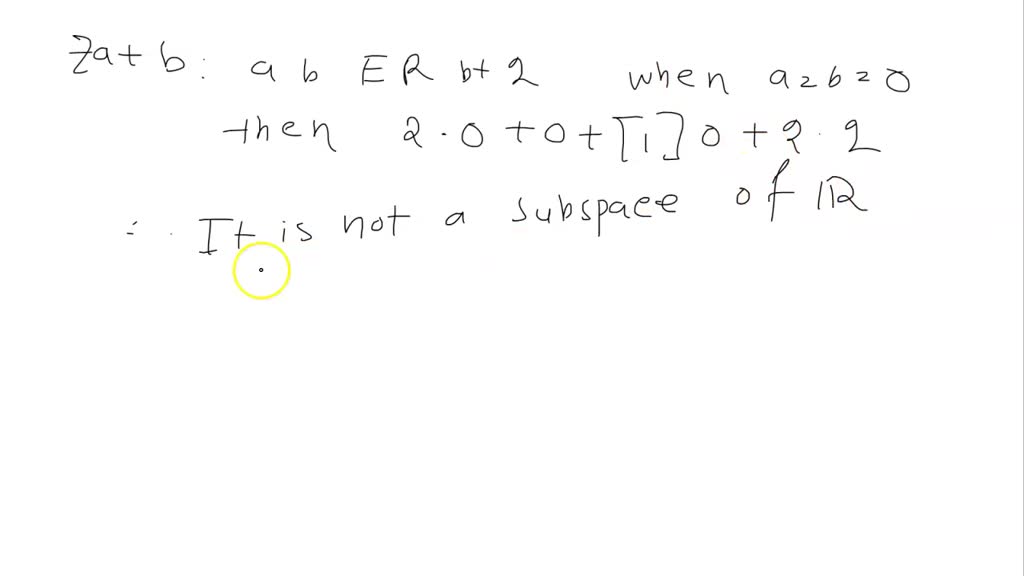 2a+ b: a b E R b+ 2 when a = b = 0
then 2 · 0 + 0 + [1] 0 + 2 · 2
∴ It is not a subspace of ℝ